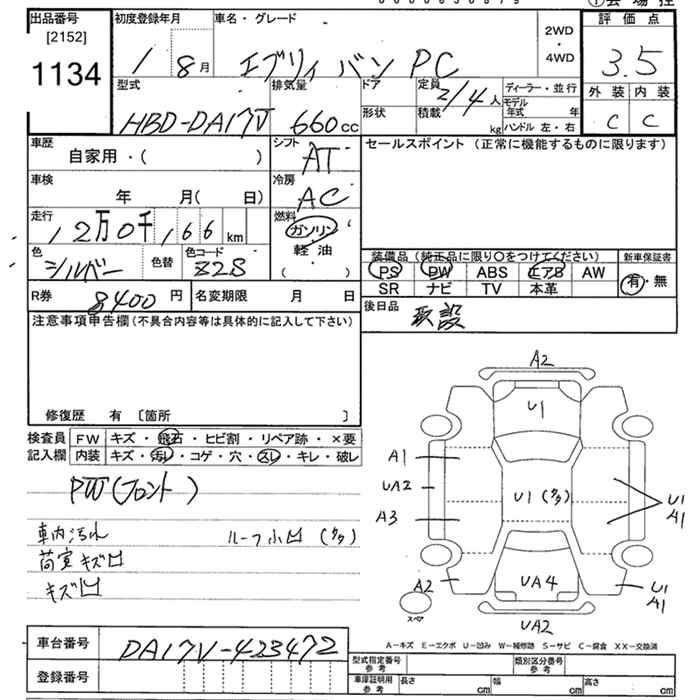 出品番号 [2152] 1134
初度登録年月 1 8月
車名・グレード エブリィ バン PC
2WD・4WD
評価点 3.5
外装 C 内装 C
型式 HBD-DA17V
排気量 660cc
ドア 形状
定員 2/4人
積載 kg
ディーラー・並行
モデル年式 年
ハンドル 左・右
車歴 自家用・( )
シフト AT
セールスポイント (正常に機能するものに限ります)
車検 年 月( 日)
冷房 AC
走行 12万0千166km
燃料 ガソリン 軽油・( )
色 シルバー 色替 色コード Z2S
装備品 (純正品に限り〇をつけてください)
新車保証書
PS PW ABS エアB AW
SR ナビ TV 本革
有・無
R券 8400円
名変期限 月 日
後日品 取説
注意事項申告欄 (不具合内容等は具体的に記入して下さい)
修復歴 有 〔箇所 〕
検査員記入欄
FW キズ・飛石・ヒビ割・リペア跡・×要
内装 キズ・汚れ・コゲ・穴・スレ・キレ・破レ
PW(フロント)
車内汚れ ルーフ小凹(多タ)
荷室キズ凹
キズ凹
A2
U1
A1
UA2
U1(多タ)
A3
U1
A1
A2
UA4
U1
A1
スペア
UA2
A-キズ E-エクボ U-凹み W-補修跡 S-サビ C-腐食 XX-交換済
車台番号 DA17V-423472
登録番号
型式指定番号 参考
類別区分番号 参考
車庫証明用 参考 長さ cm 幅 cm 高さ cm